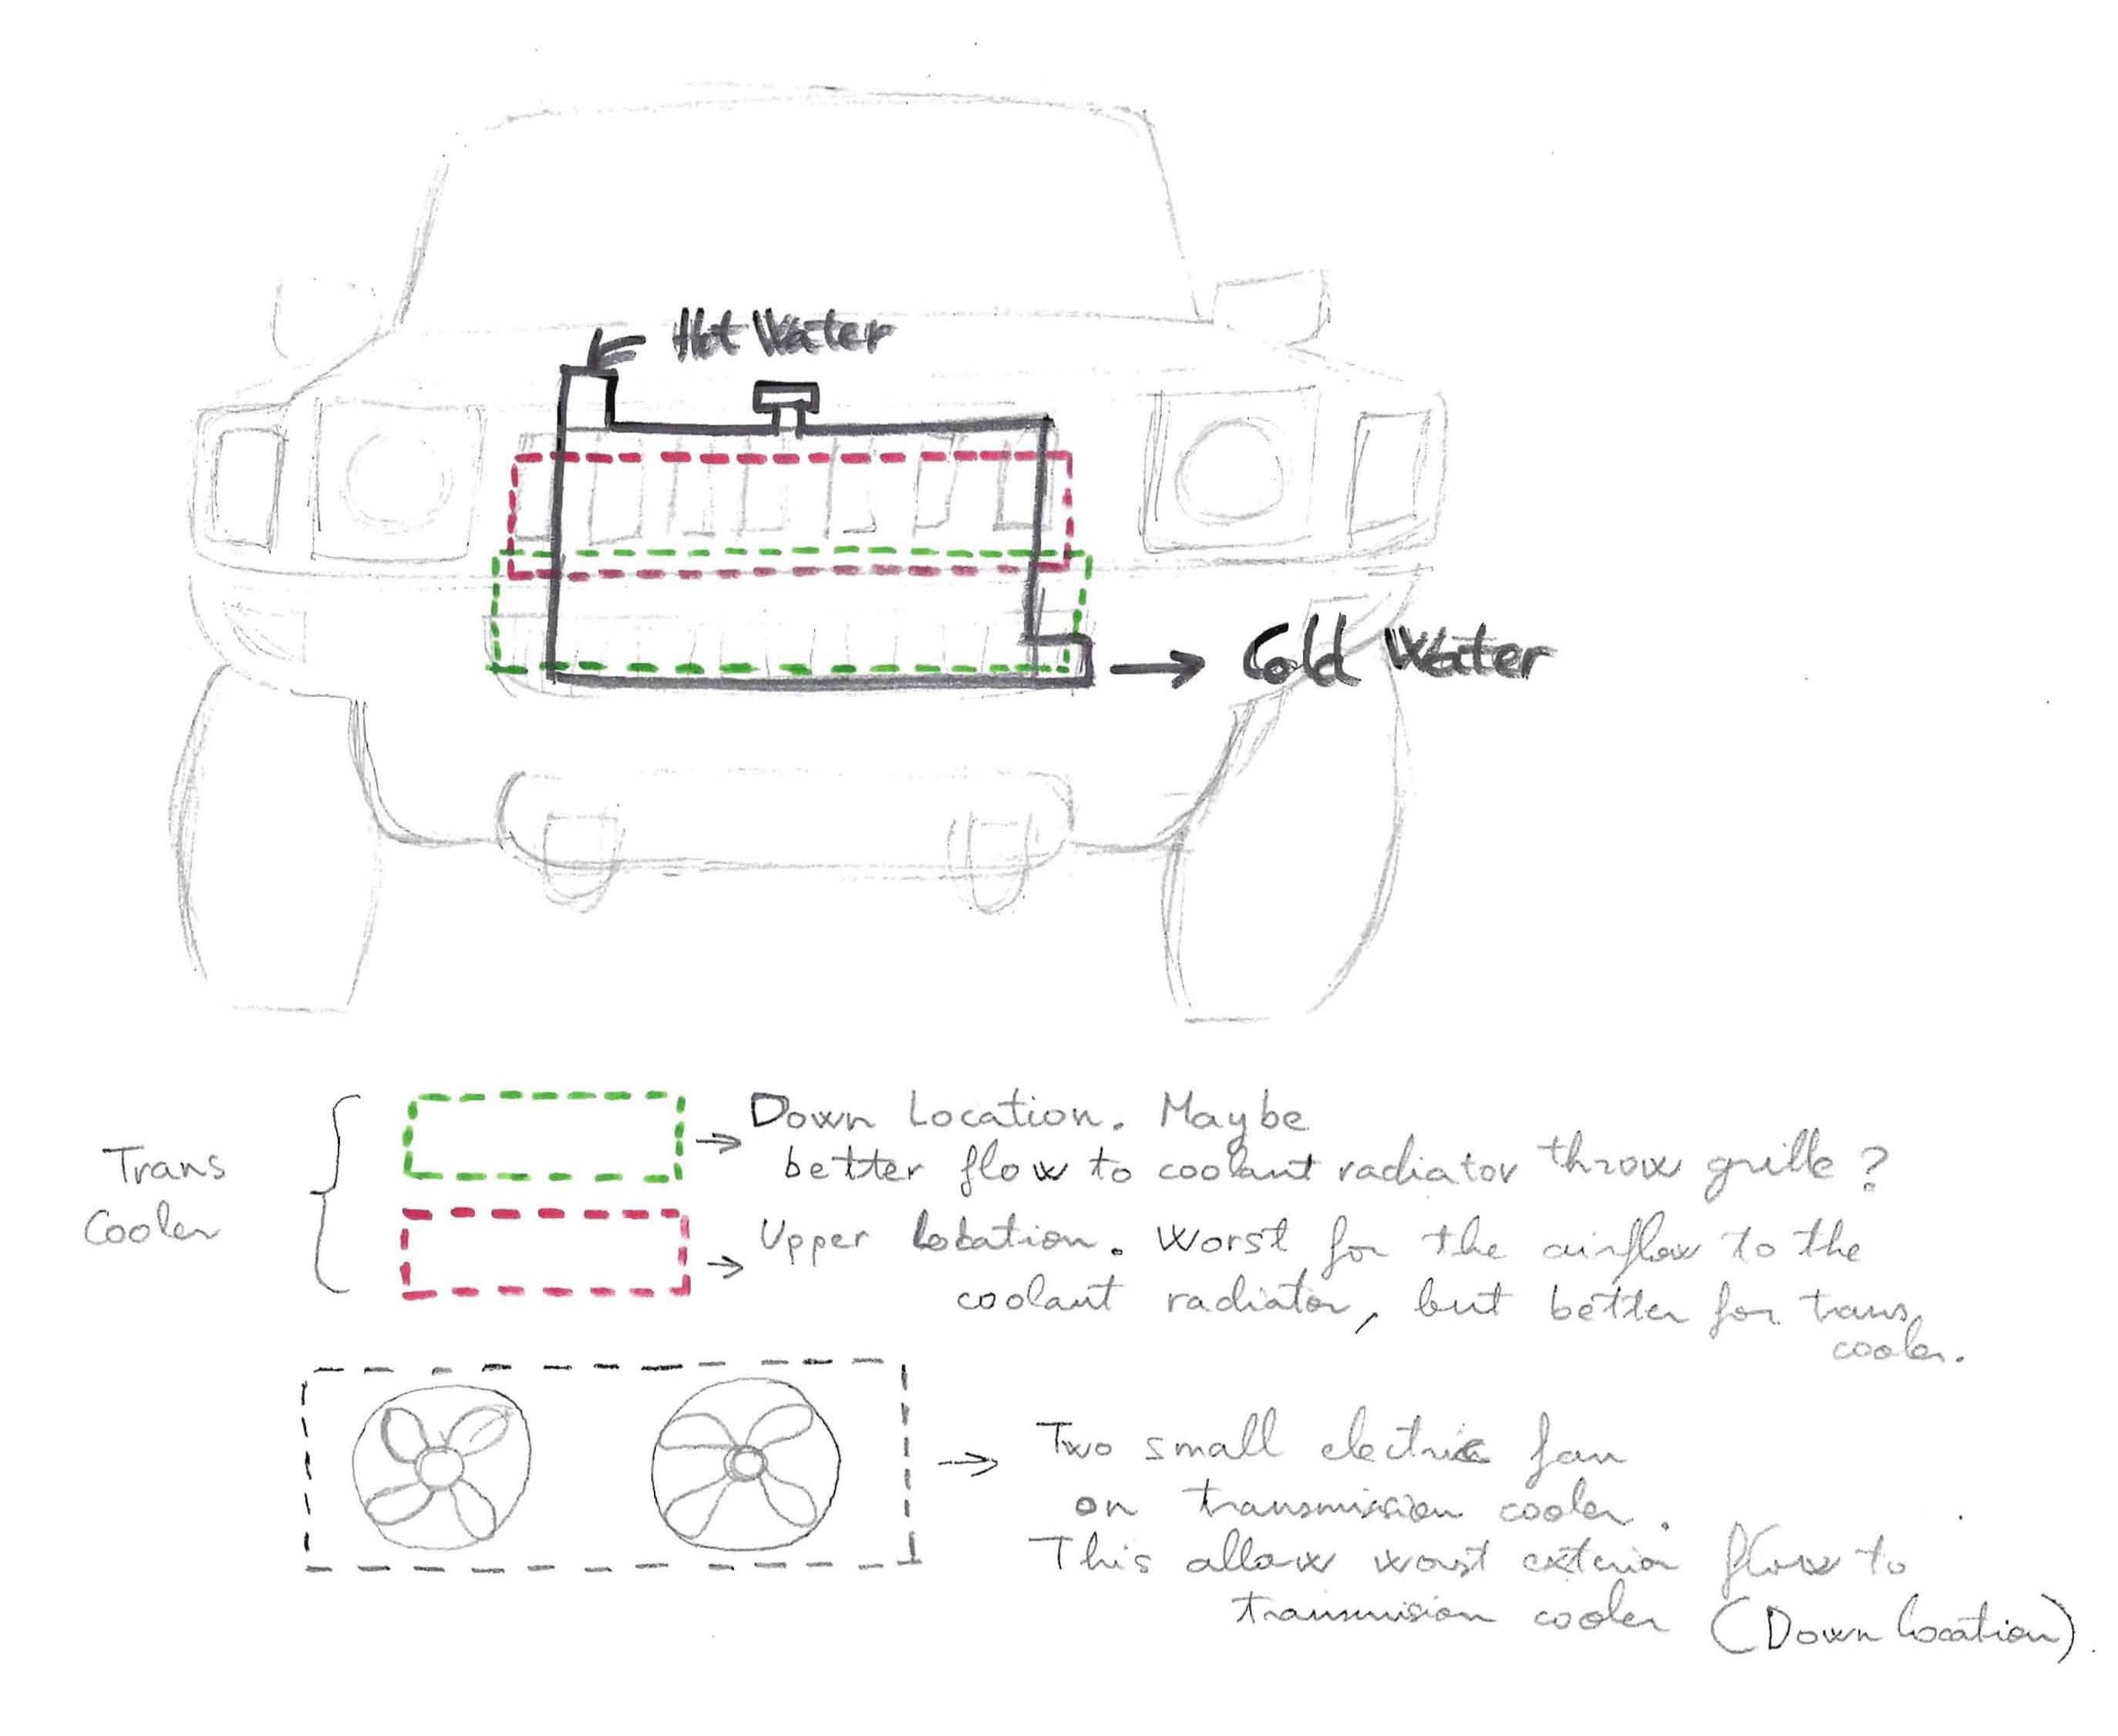 Hot Water
Cold Water
Trans
Cooler
Down Location. Maybe
better flow to coolant radiator throw grille?
Upper Location. Worst for the airflow to the
coolant radiator, but better for trans
cooler.
Two small electric fan
on transmission cooler.
This allow worst exterior flow to
transmision cooler (Down location).